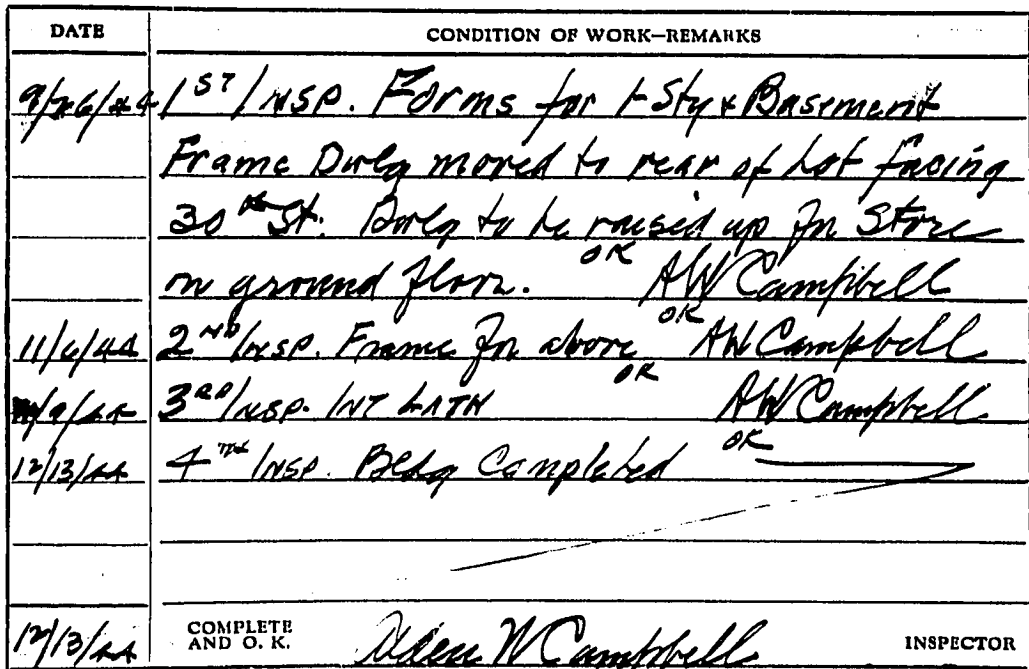 DATE CONDITION OF WORK—REMARKS
9/26/44 1ST INSP. Forms for 1-Sty & Basement
Frame Dwlg moved to rear of Lot facing
30th St. Dwlg to be raised up for Store
on ground floor. OK AW Campbell
11/6/44 2ND INSP. Frame for above OK AW Campbell
/9/44 3RD INSP. INT LATH OK AW Campbell
12/13/44 4TH INSP. Bldg Completed OK
12/13/44 COMPLETE AND O. K. W Campbell INSPECTOR